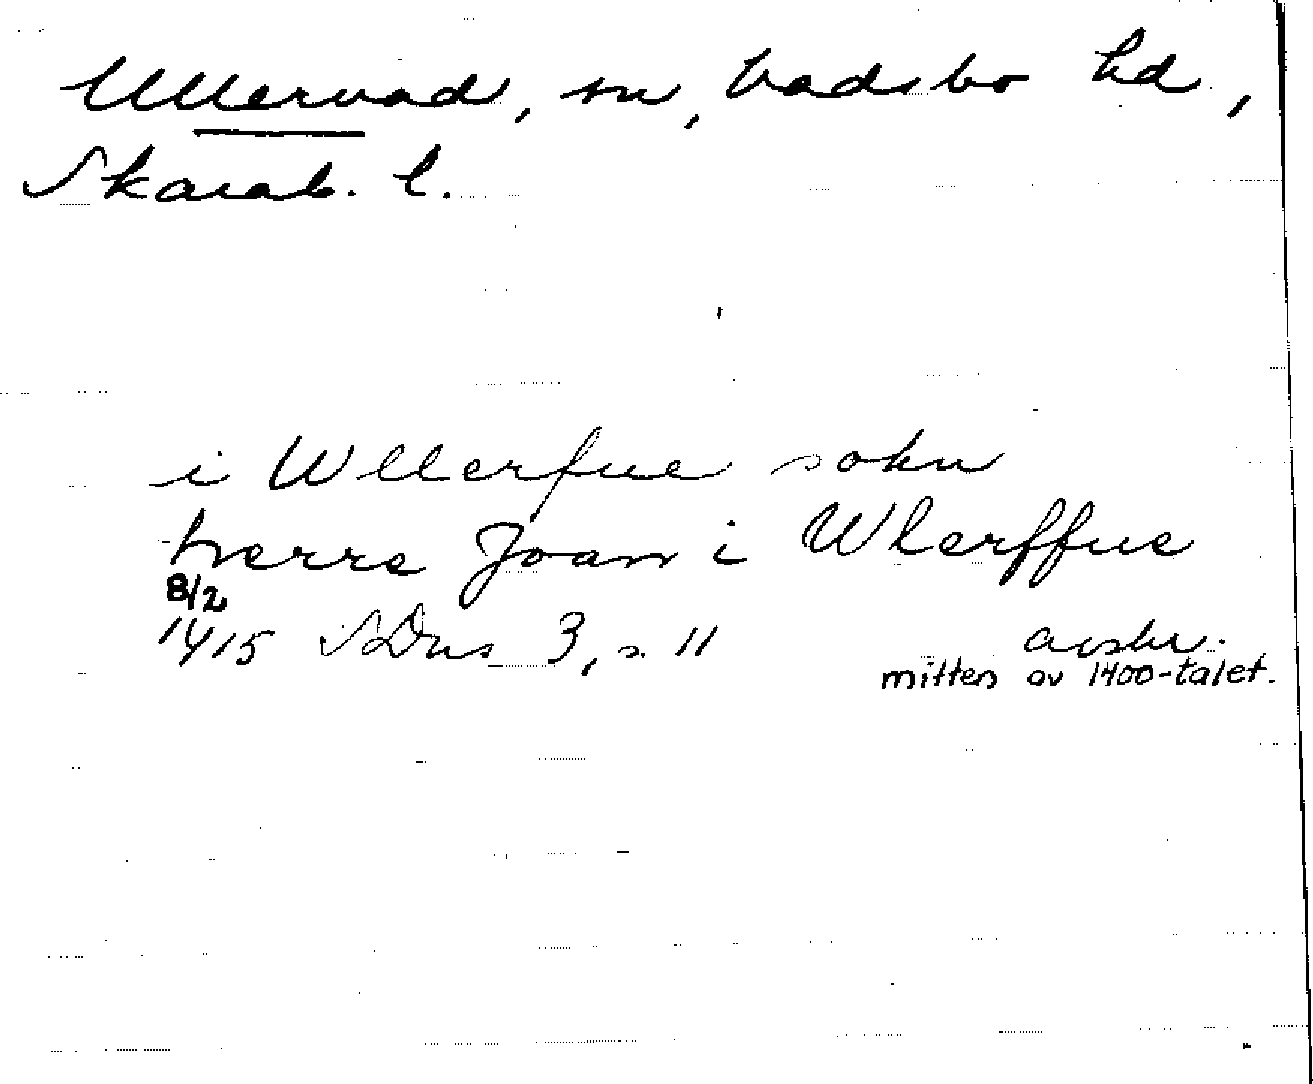 Ullervad, sn, Vadsbo hd,
Skarab. l.
i Wllerfue sokn
herre Joan i Wlerffue
8/2
1415 SDns 3, s. 11 avskr.
mitten av 1400-talet.